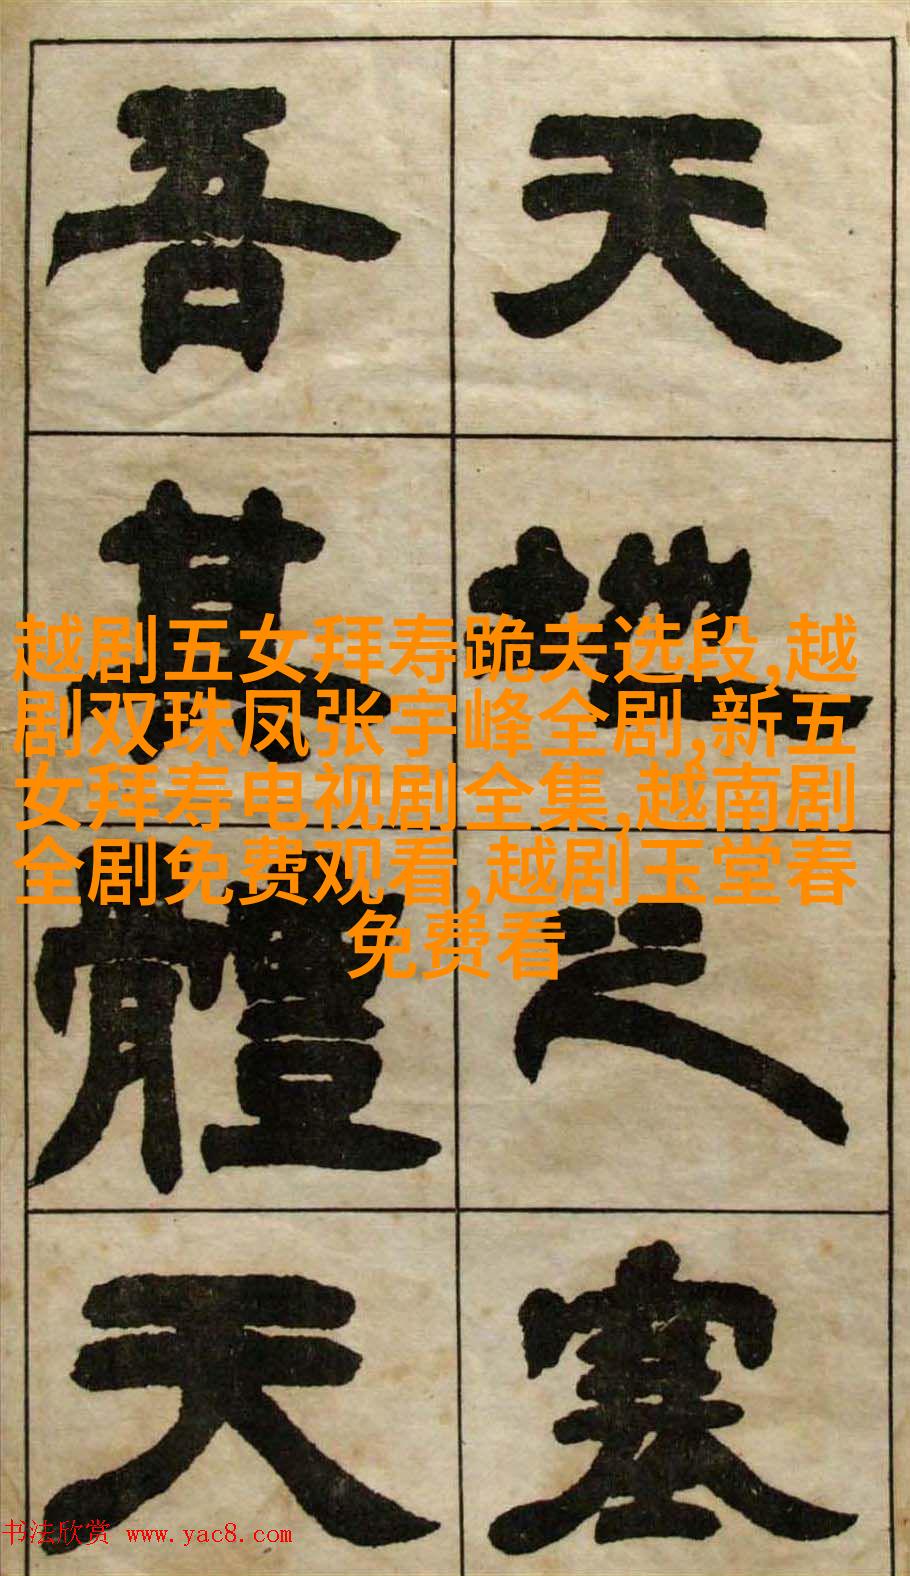 天地之塞
吾其體天
越剧五女拜寿跪夫选段,越
剧双珠凤张宇峰全剧,新五
女拜寿电视剧全集,越南剧
全剧免费观看,越剧玉堂春
免费看
书法欣赏 www.yac8.com